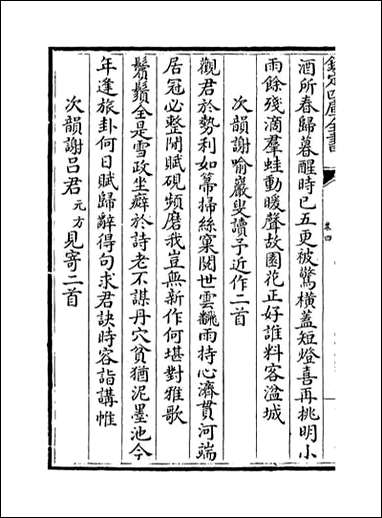 欽定四庫全書
卷四
酒所春歸暮醒時已五更被驚橫蓋短燈喜再挑明小
雨餘殘滴羣蛙動暖聲故園花正好誰料客湓城
次韻謝喻嚴叟讀予近作二首
觀君於勢利如篲掃絲窠閲世雲翻雨持心濟貫河端
居冠必整閒賦硯頻磨我豈無新作何堪對雅歌
鬚鬢全是雪政坐癖於詩老不諶丹穴貧猶泥墨池今
年逢旅卦何日賦歸辭得句求君訣時容詣講帷
次韻謝吕君元方見寄二首